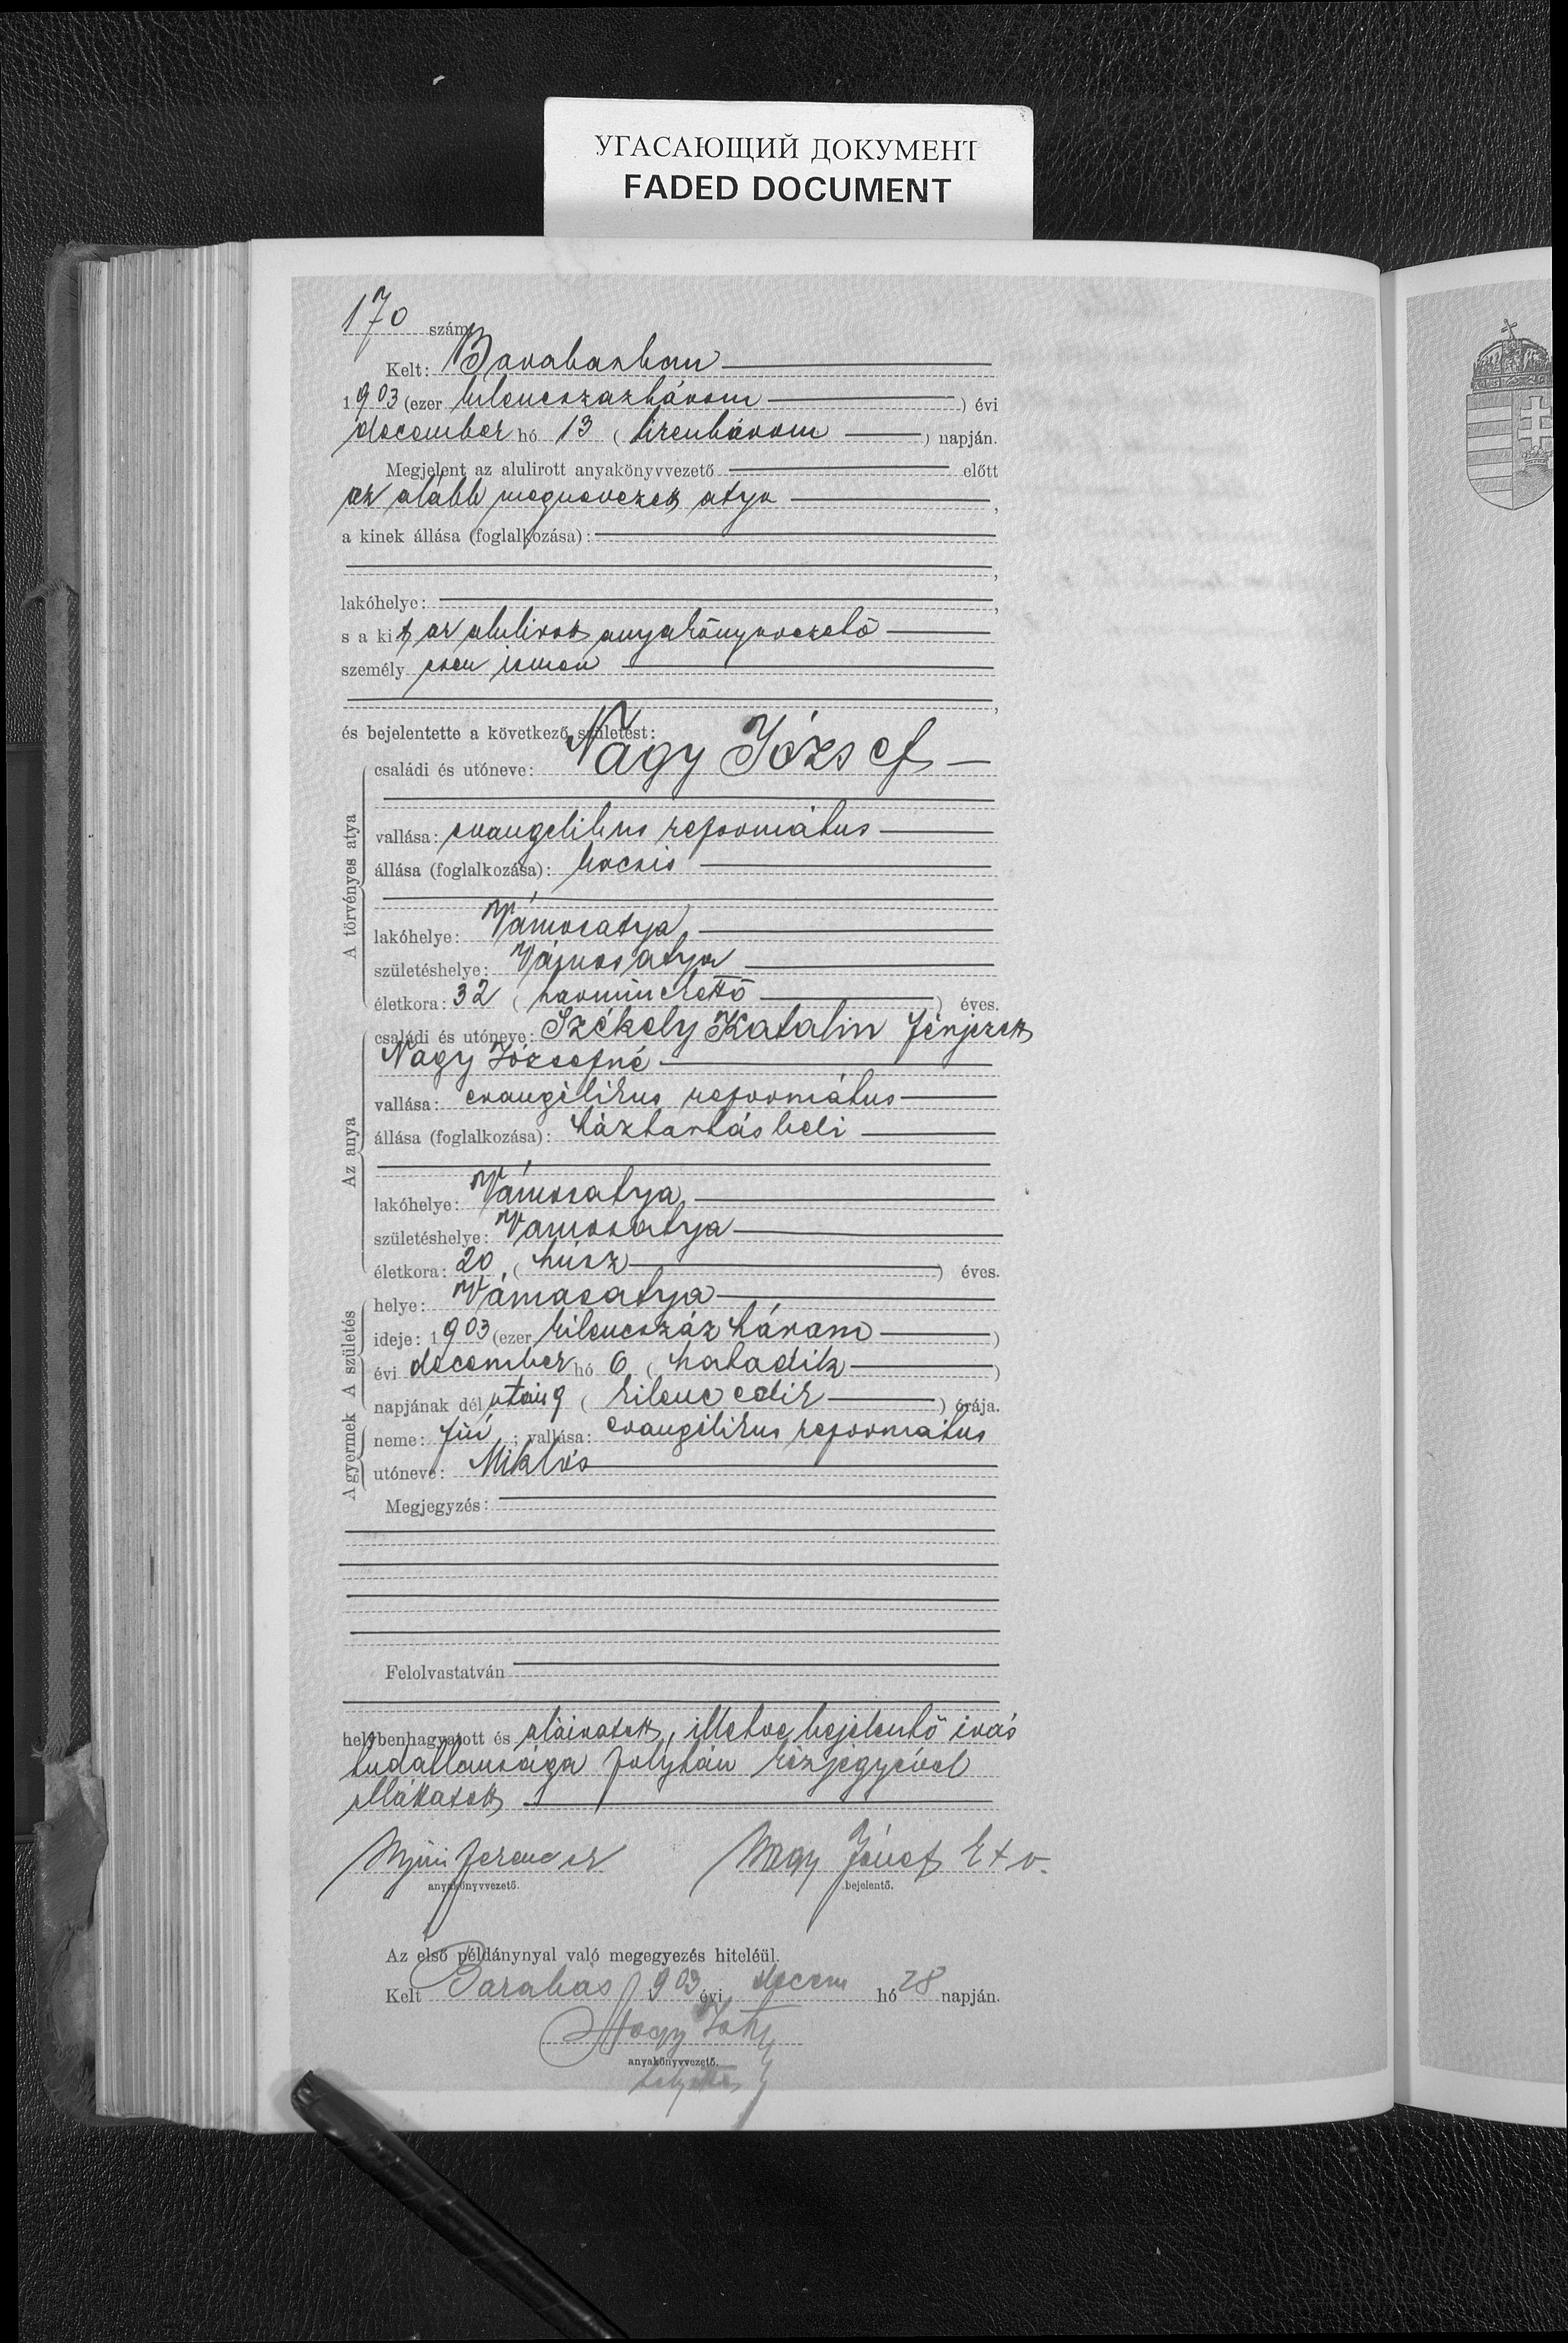 УГАСАЮЩИЙ ДОКУМЕНТ
FADED DOCUMENT
170 szám
Kelt: Barabasban
1903 (ezer kilencszazhárom) évi
december hó 13 (tizenhárom) napján.
Megjelent az alulirott anyakönyvvezető előtt
az alább megnevezett atya,
a kinek állása (foglalkozása):
,
lakóhelye: ,
s a kit az alulirott anyakönyvvezető
személyesen ismer
,
és bejelentette a következő születést:
A törvényes atya
családi és utóneve: Nagy József
vallása: evangelikus református
állása (foglalkozása): kocsis
lakóhelye: Vámosatya,
születéshelye: Vámosatya
életkora: 32 (harminckettő) éves.
Az anya
családi és utóneve: Székely Katalin férjezett
Nagy Józsefné
vallása: evangélikus református
állása (foglalkozása): háztartásbeli
lakóhelye: Vámosatya,
születéshelye: Vamosatya
életkora: 20 (húsz) éves.
A születés
helye: Vámosatya
ideje: 1903 (ezer kilencszáz három)
évi december hó 6 (hatodik)
napjának délután 9 (kilencedik) órája.
A gyermek
neme: fiú; vallása: evangélikus református
utóneve: Miklós
Megjegyzés:
Felolvastatván
helybenhagyatott és aláiratott, illetve bejelentő irás
tudatlansága folytán kézjegyével
elláttatott
Ferencz Nagy József k+v.
anyakönyvvezető. bejelentő.
Az első példánynyal való megegyezés hiteléül.
Kelt Barabás 1903 évi decem hó 28 napján.
Nagy
anyakönyvvezető.